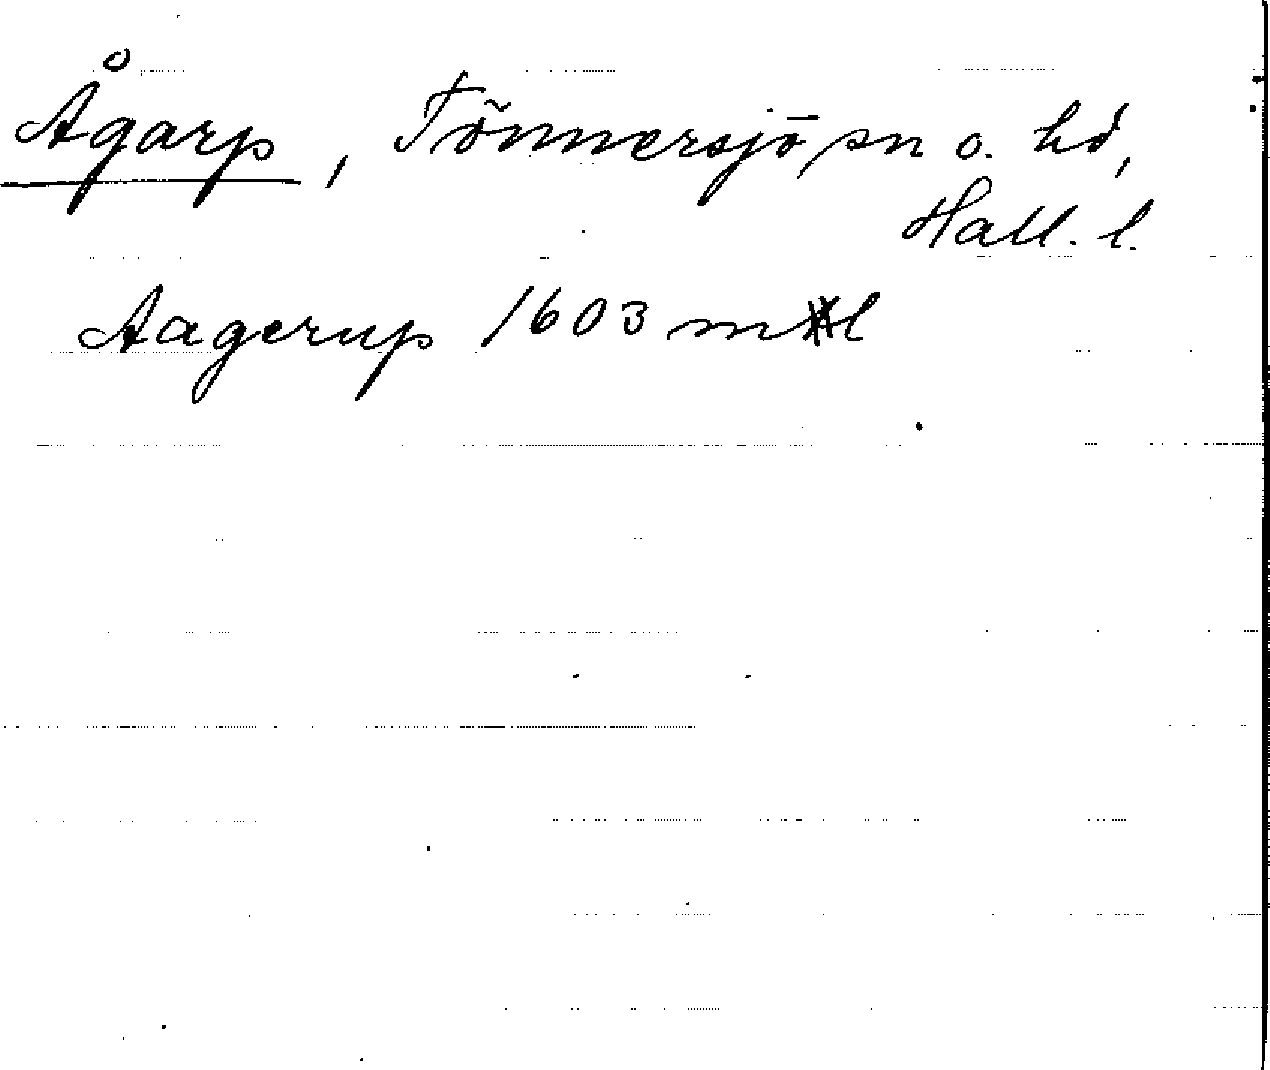 Ågarp, Tönnersjö sn o. hd,
Hall. l.
Aagerup 1603